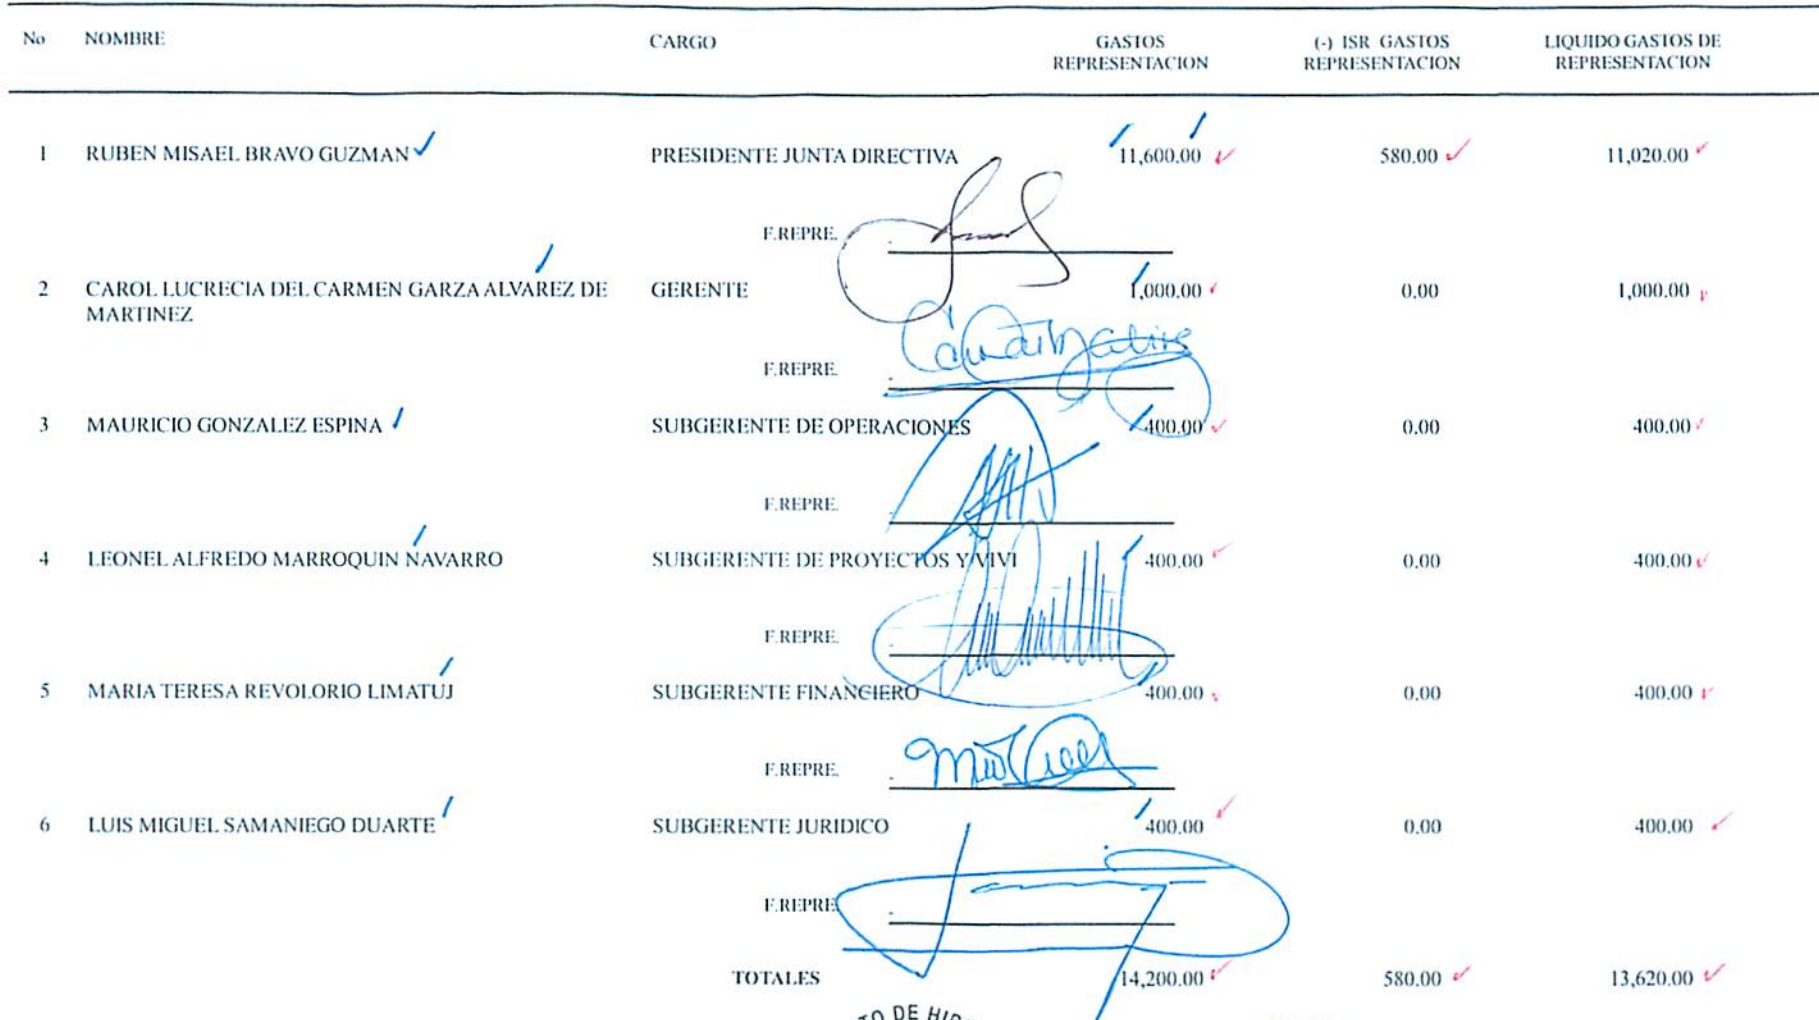 No NOMBRE CARGO GASTOS REPRESENTACION (-) ISR GASTOS REPRESENTACION LIQUIDO GASTOS DE REPRESENTACION
1 RUBEN MISAEL BRAVO GUZMAN PRESIDENTE JUNTA DIRECTIVA 11,600.00 580.00 11,020.00
F.REPRE.
2 CAROL LUCRECIA DEL CARMEN GARZA ALVAREZ DE GERENTE 1,000.00 0.00 1,000.00
MARTINEZ
F.REPRE.
3 MAURICIO GONZALEZ ESPINA SUBGERENTE DE OPERACIONES 400.00 0.00 400.00
F.REPRE.
4 LEONEL ALFREDO MARROQUIN NAVARRO SUBGERENTE DE PROYECTOS Y VIVI 400.00 0.00 400.00
F.REPRE.
5 MARIA TERESA REVOLORIO LIMATUJ SUBGERENTE FINANCIERO 400.00 0.00 400.00
F.REPRE.
6 LUIS MIGUEL SAMANIEGO DUARTE SUBGERENTE JURIDICO 400.00 0.00 400.00
F.REPRE.
TOTALES 14,200.00 580.00 13,620.00
DE